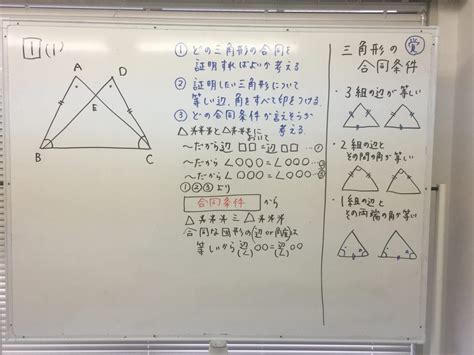 1 (1)
A
D
E
B
C
① どの三角形の合同を
証明すればよいか考える
② 証明したい三角形について
等しい辺、角をすべて印をつける。
③ どの合同条件が言えそうか
考える
△***と△***において
〜だから辺□□=辺□□…①
〜だから∠○○○=∠○○○…②
〜だから∠○○○=∠○○○…③
①②③より
合同条件 から
△***≡△***
合同な図形の(辺or角)は
等しいから辺(∠)○○=辺(∠)○○
三角形の 覚
合同条件
・3組の辺が等しい
・2組の辺と
その間の角が等しい
・1組の辺と
その両端の角が等しい